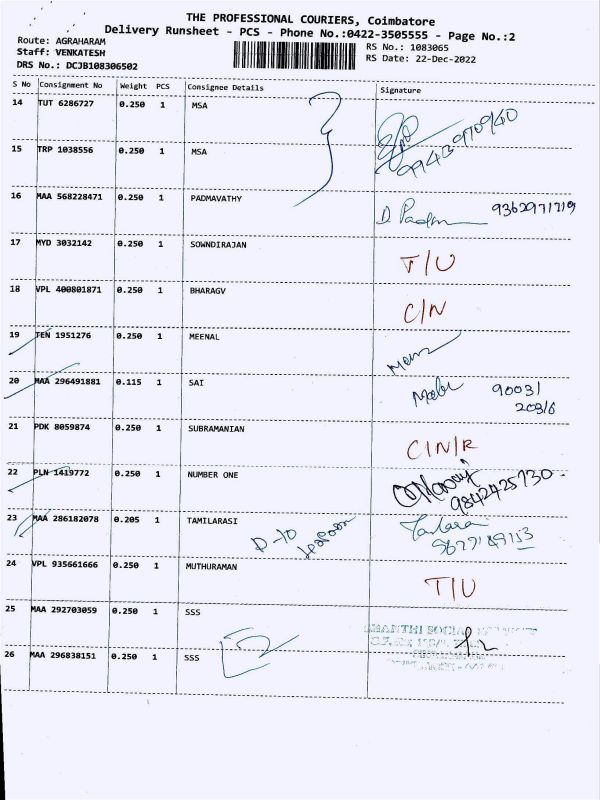 THE PROFESSIONAL COURIERS, Coimbatore
Delivery Runsheet - PCS - Phone No.:0422-3505555 - Page No.:2
Route: AGRAHARAM
Staff: VENKATESH
DRS No.: DCJB108306502
RS No.: 1083065
RS Date: 22-Dec-2022
S No Consignment No Weight PCS Consignee Details Signature
14 TUT 6286727 0.250 1 MSA
9943970940
15 TRP 1038556 0.250 1 MSA
16 MAA 568228471 0.250 1 PADMAVATHY 9362971719
17 MYD 3032142 0.250 1 SOWNDIRAJAN T/U
18 VPL 400801871 0.250 1 BHARAGV C/N
19 TEN 1951276 0.250 1 MEENAL
20 MAA 296491881 0.115 1 SAI 90031
20316
21 PDK 8059874 0.250 1 SUBRAMANIAN C/N/R
22 PLN 1419772 0.250 1 NUMBER ONE
9842425730
23 MAA 286182078 0.205 1 TAMILARASI D-10
24 VPL 935661666 0.250 1 MUTHURAMAN T/U
25 MAA 292703059 0.250 1 SSS
26 MAA 296838151 0.250 1 SSS